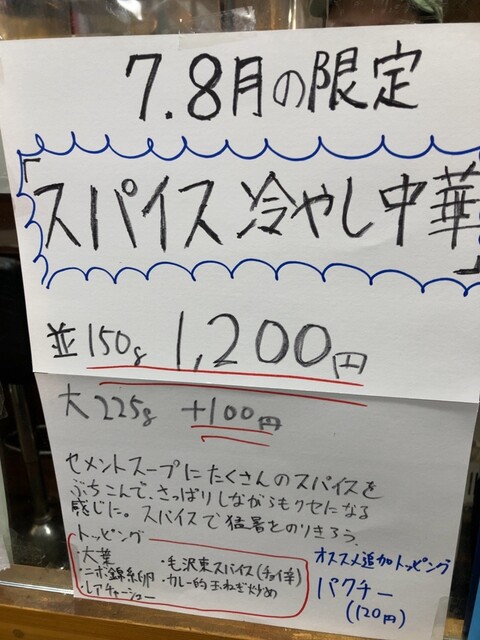 7.8月の限定
「スパイス冷やし中華」
並150g 1,200円
大225g +100円
セメントスープにたくさんのスパイスを
ぶちこんで、さっぱりしながらもクセになる
感じに。スパイスで猛暑をのりきろう。
トッピング
・大葉
・ニボ錦糸卵
・レアチャーシュー
・毛沢東スパイス(チョイ辛)
・カレー的玉ねぎ炒め
オススメ追加トッピング
パクチー
(120円)